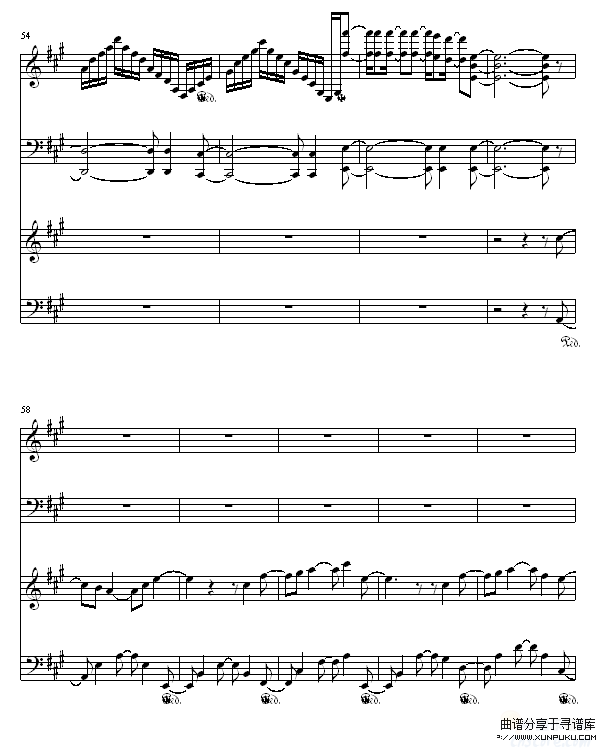 54
Ped.
Ped.
58
Ped.
Ped.
Ped.
Ped.
Ped.
曲谱分享于寻谱库
(WWW.XUNPUKU.COM)